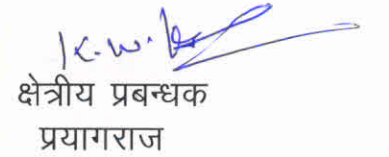 क्षेत्रीय प्रबन्धक
प्रयागराज